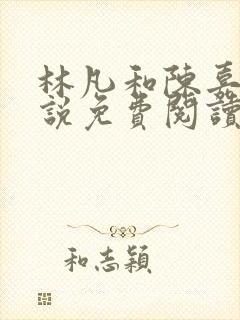 林凡和陳嘉
說免費閱讀
和志穎